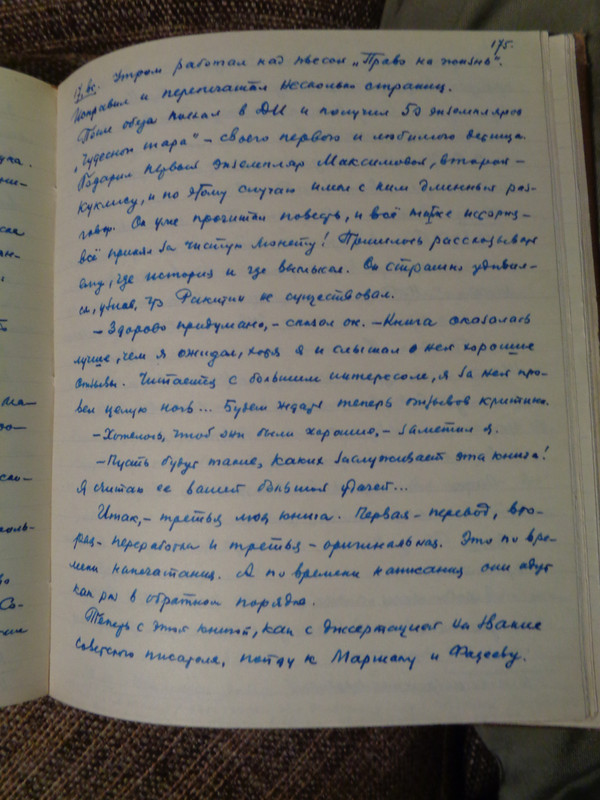 175.
17, вс. Утром работал над пьесой „Право на жизнь".
Исправил и перепечатал несколько страниц.
После обеда поехал в ДИ и получил 50 экземпляров
„Чудесного шара" – своего первого и любимого детища.
Подарил первый экземпляр Максимовой, второй –
Куклису, и по этому случаю имел с ним длинный раз-
говор. Он уже прочитал повесть, и всё также
всё принял за чистую монету! Пришлось рассказывать
ему, где история и где вымысел. Он страшно удивил-
ся, узнав, что Ракитин не существовал.
– Здорово придумано, – сказал он. – Книга оказалась
лучше, чем я ожидал, хотя я и слышал о ней хорошие
отзывы. Читается с большим интересом, я за ней про-
вел целую ночь... Будем ждать теперь отзывов критики.
– Хотелось, чтоб они были хорошие, – заметил я.
– Пусть будут такие, каких заслуживает эта книга!
Я считаю ее вашей большой удачей...
Итак, – третья моя книга. Первая – перевод, вто-
рая – переработка и третья – оригинальная. Это по вре-
мени напечатания. А по времени написания они идут
как раз в обратном порядке.
Теперь с этой книгой, как с диссертацией на звание
советского писателя, пойду к Маршаку и Фадееву.
ука.
ни-
ан-
ма-
оо-
сло-
оль-
Со-